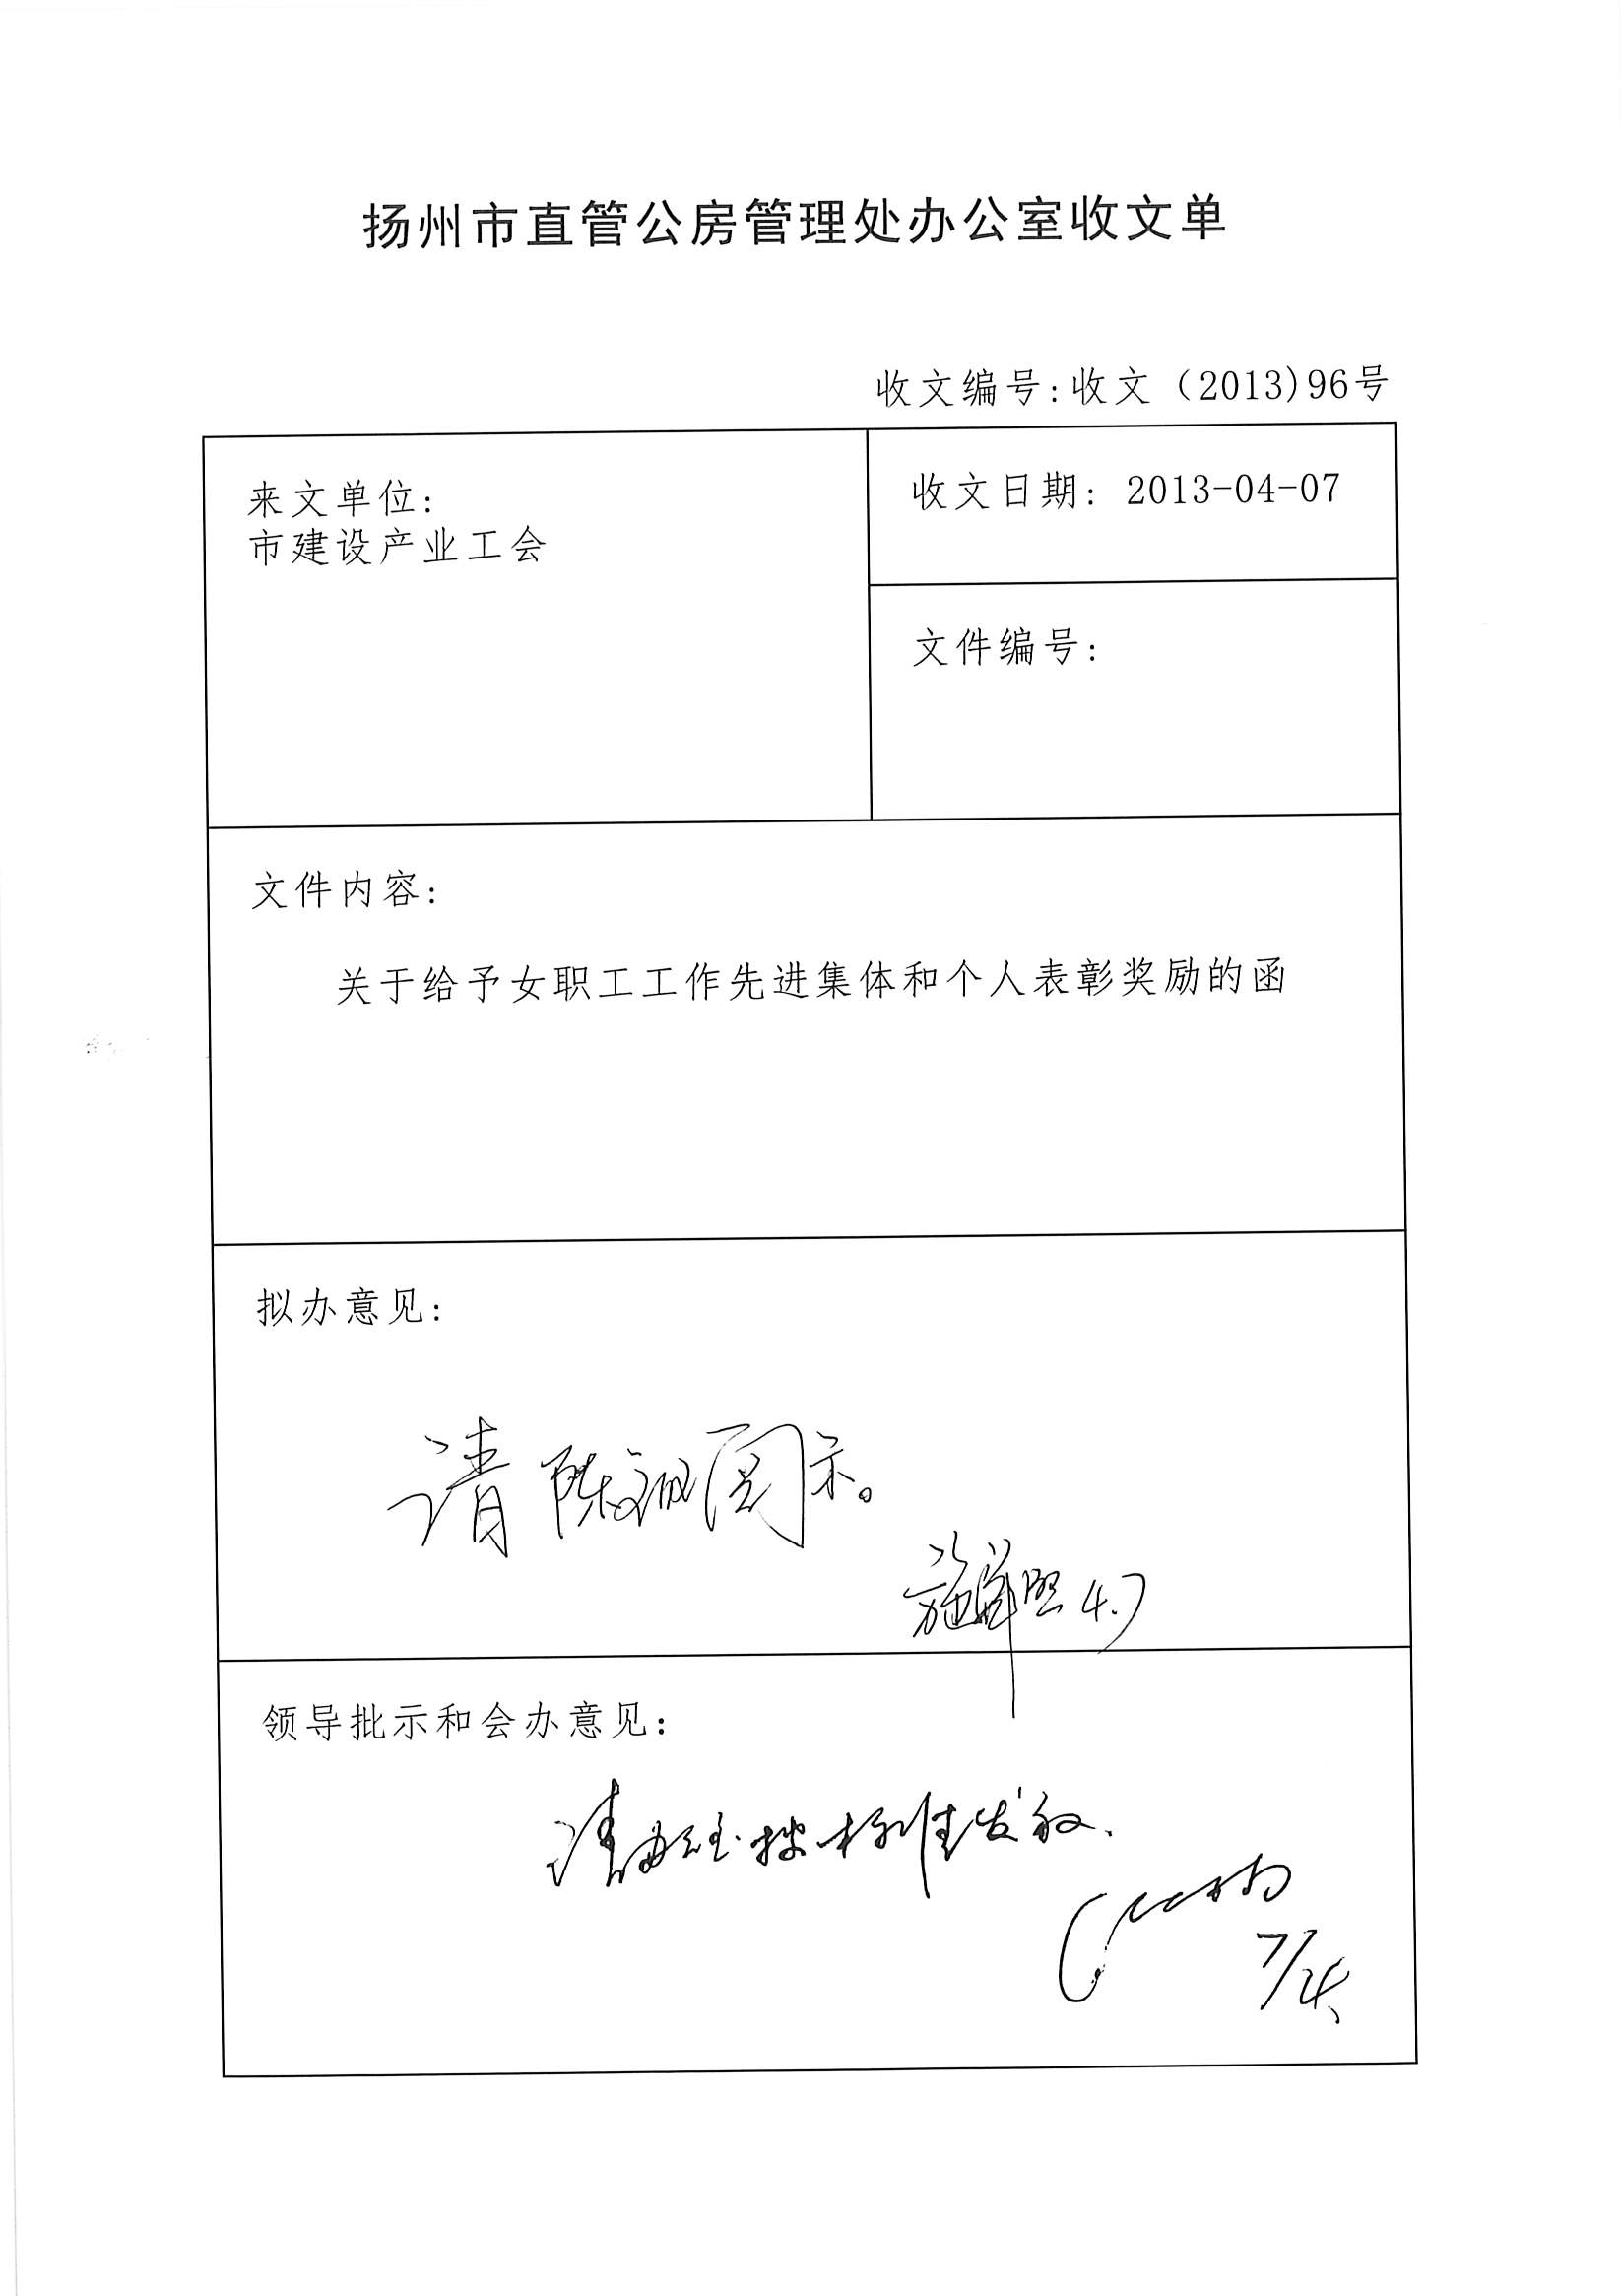 扬州市直管公房管理处办公室收文单
收文编号:收文（2013)96号
来文单位:
市建设产业工会
收文日期: 2013-04-07
文件编号:
文件内容:
关于给予女职工工作先进集体和个人表彰奖励的函
拟办意见:
请陈 阅示。
施 4.7
领导批示和会办意见:
请办公室按标准发放.
7/4